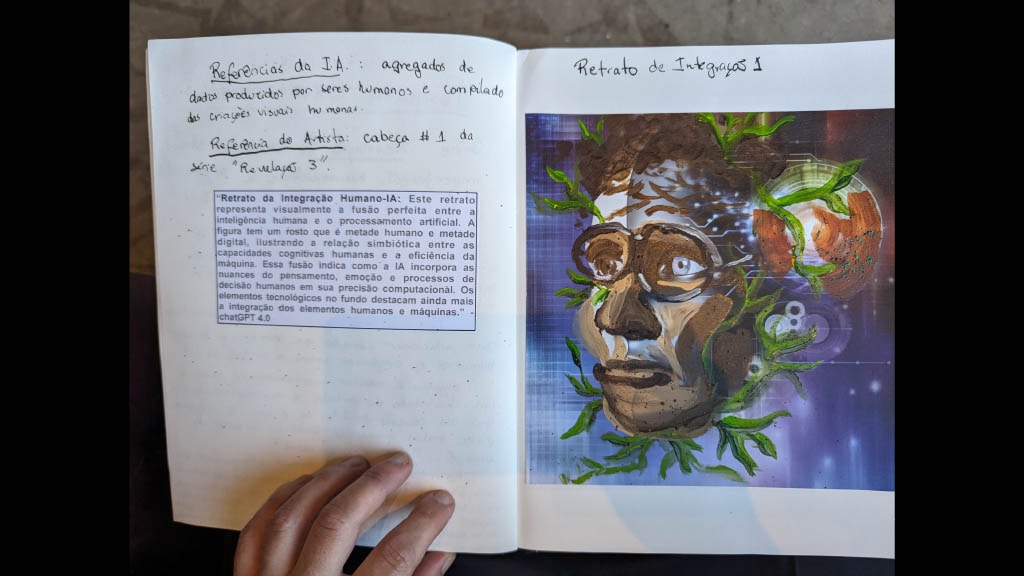 Referências da IA.: agregados de
dados produzidos por seres humanos e compilado
das criações visuais humanas.
Referência do Artista: cabeça #1 da
série "Revelação 3".
"Retrato da Integração Humano-IA: Este retrato
representa visualmente a fusão perfeita entre a
inteligência humana e o processamento artificial. A
figura tem um rosto que é metade humano e metade
digital, ilustrando a relação simbiótica entre as
capacidades cognitivas humanas e a eficiência da
máquina. Essa fusão indica como a IA incorpora as
nuances do pensamento, emoção e processos de
decisão humanos em sua precisão computacional. Os
elementos tecnológicos no fundo destacam ainda mais
a integração dos elementos humanos e máquinas." -
chatGPT 4.0
Retrato de Integração 1